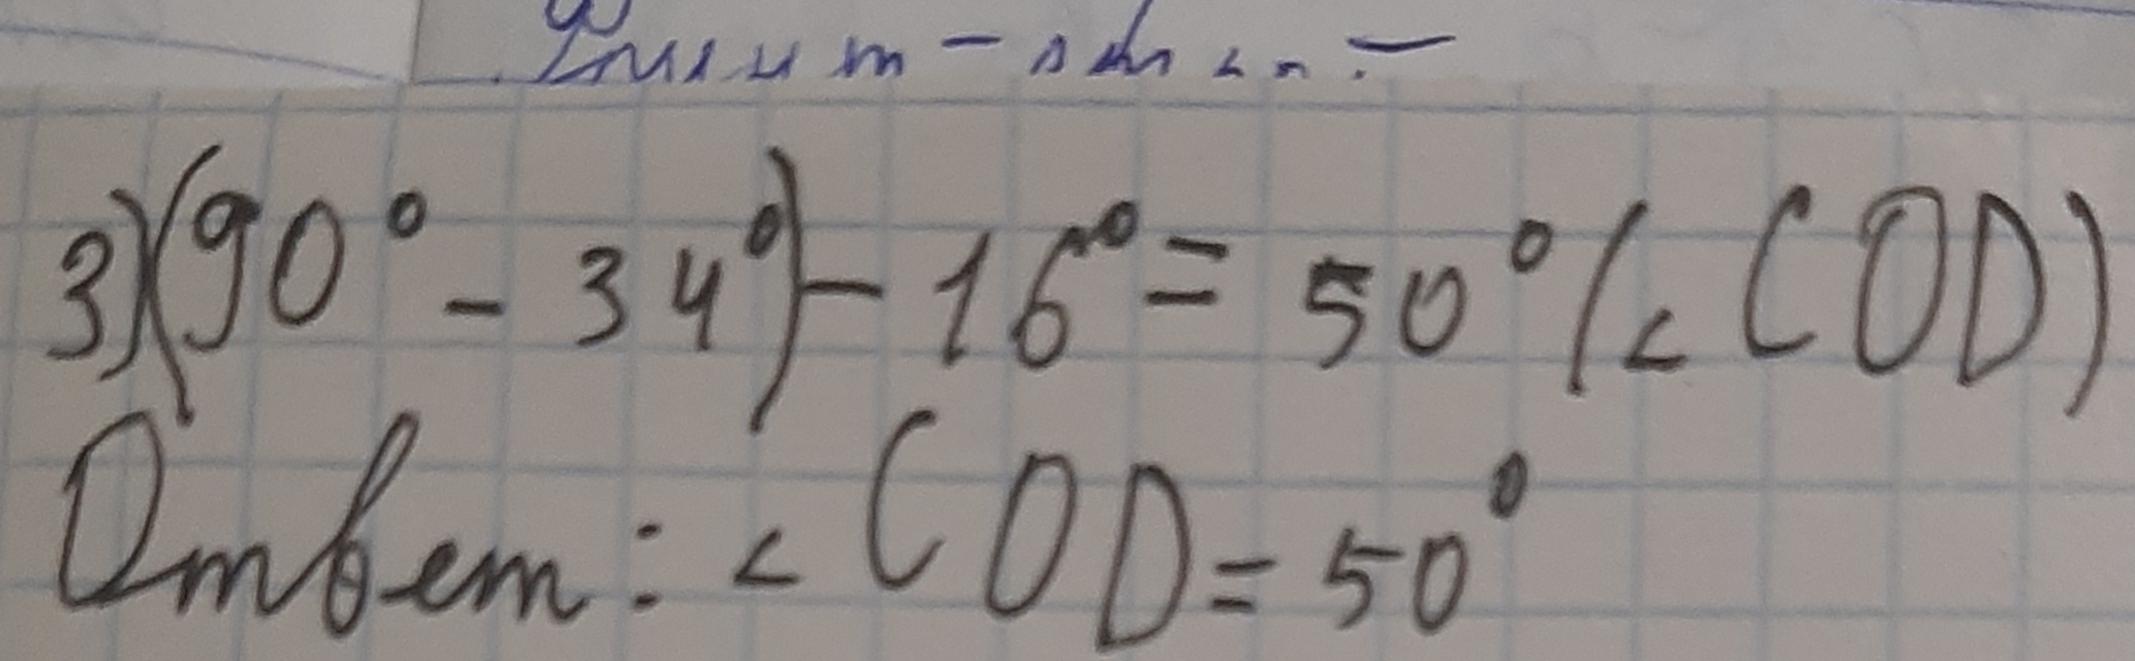 3) (90° - 34°) - 16° = 50° (< COD)
Ответ: < COD = 50°